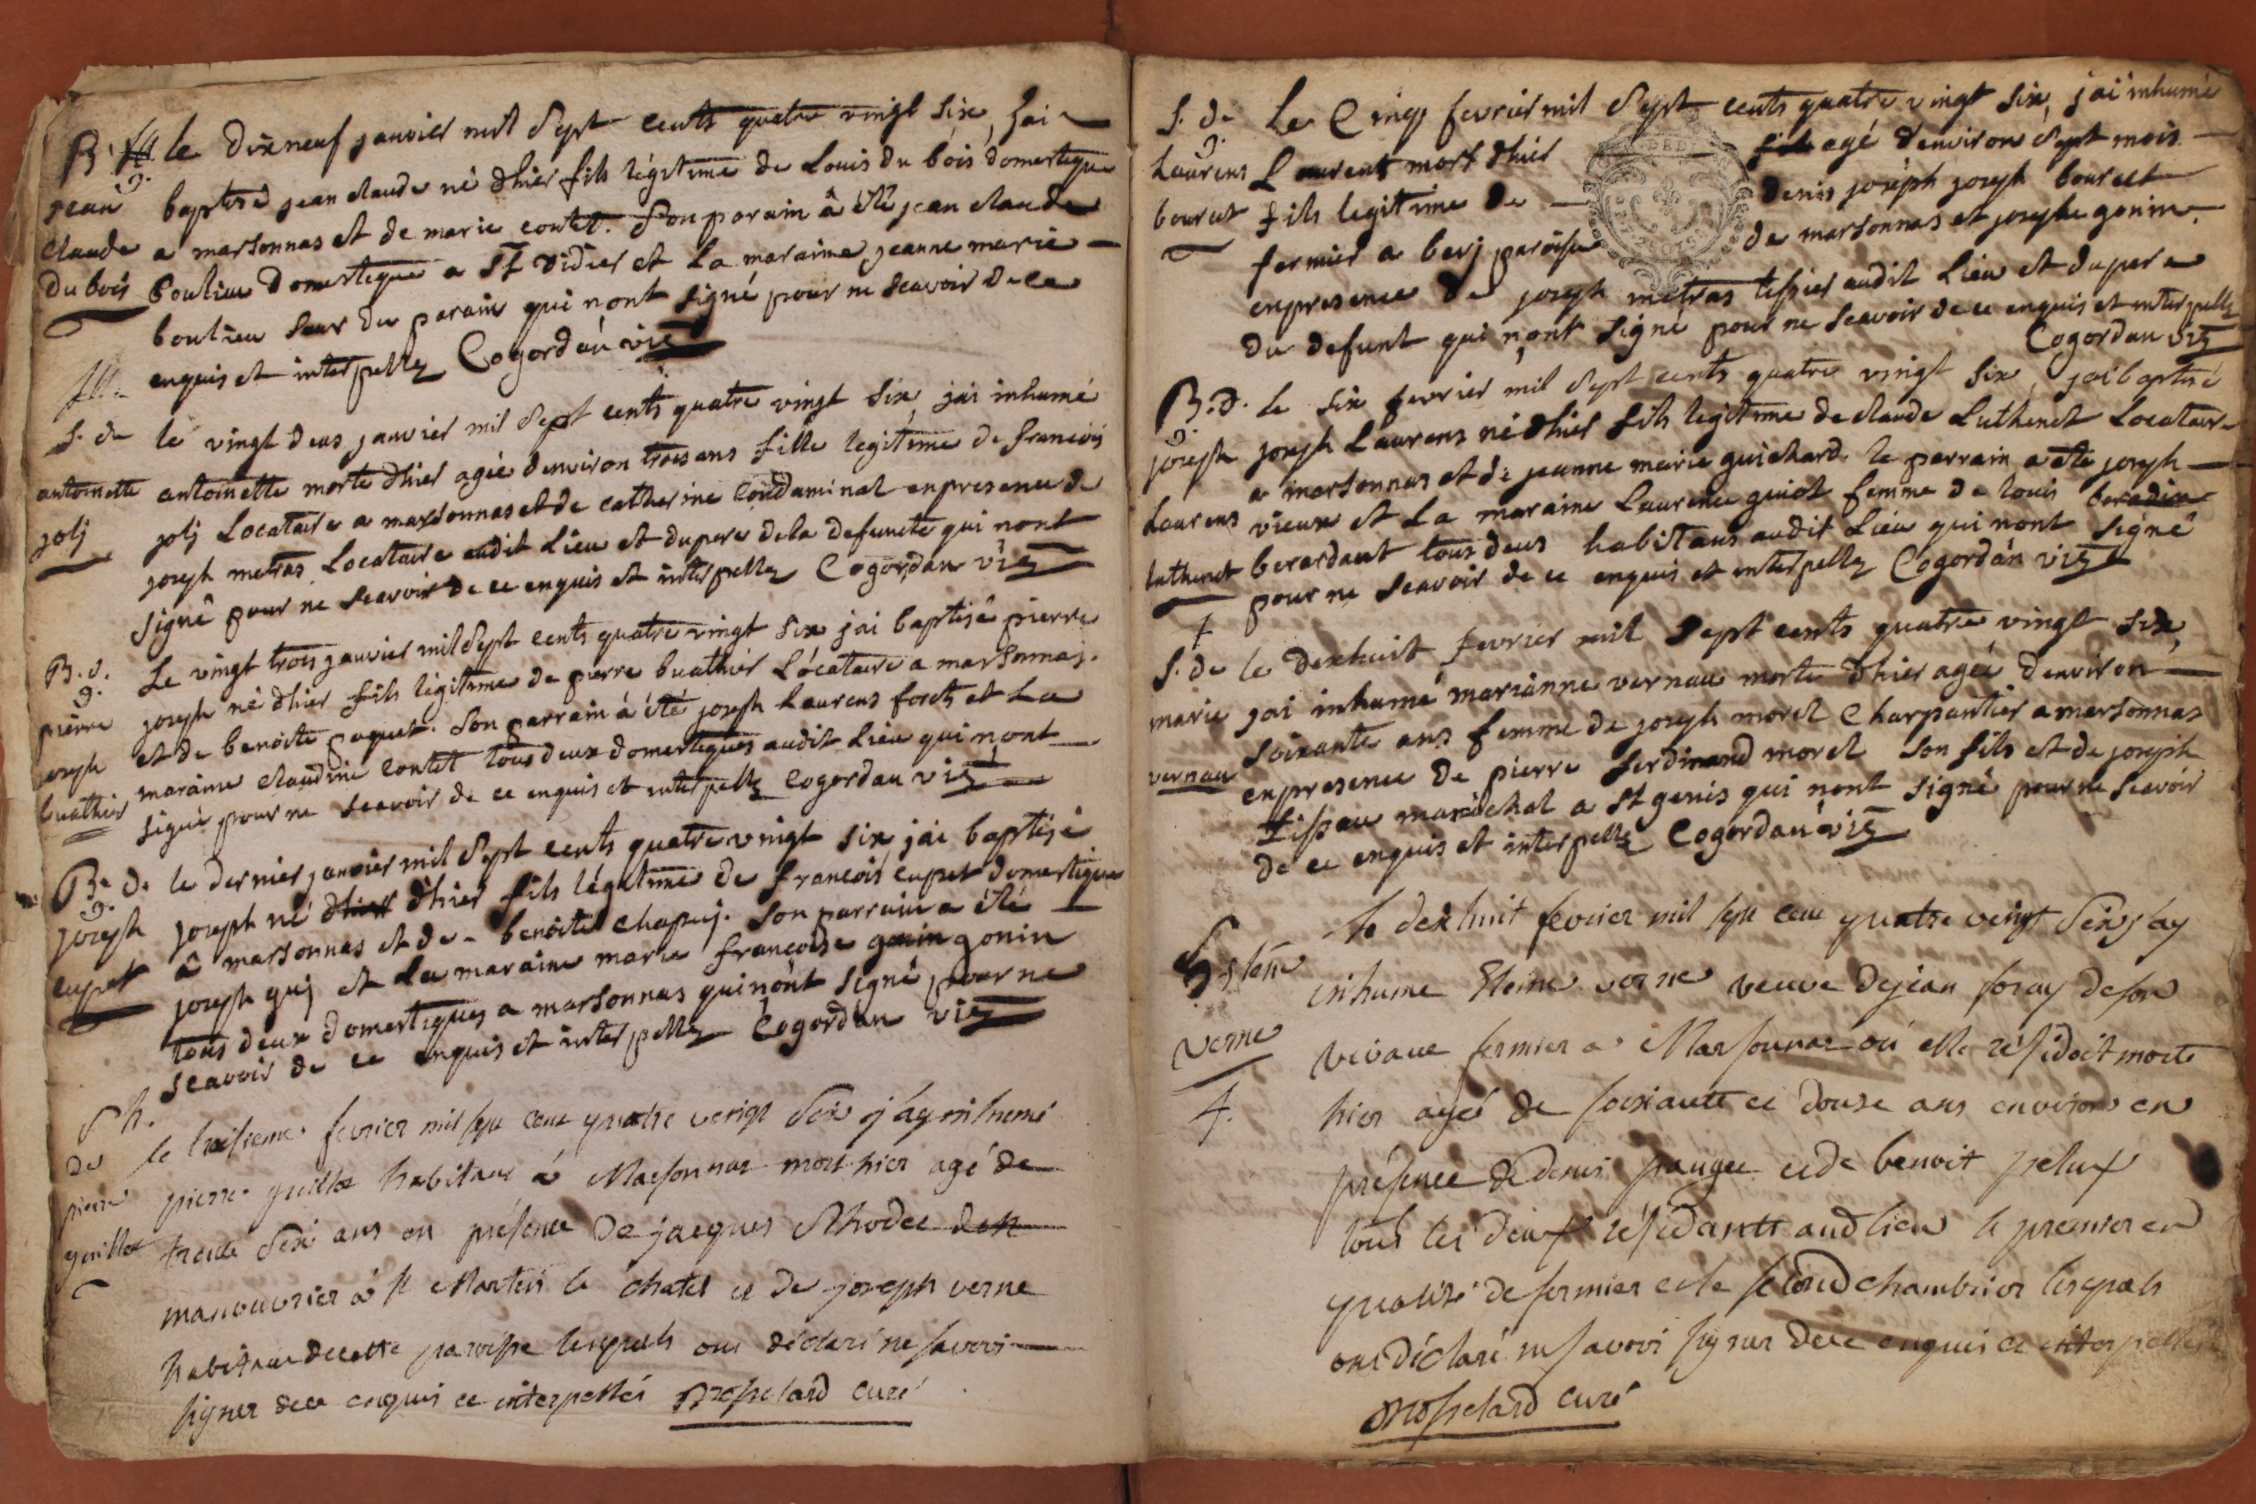 B. de le dixneuf janvier mil sept cents quatre vingt six, jai
jean baptisé jean claude né dhier fils légitime de Louis du bois domestique
claude a marsonnas et de marie contet. Son parain â été jean claude
du bois boulieu domestique a St vidier et la maraine jeanne marie
boulieu seur du parain qui nont signé pour ne scavoir de ce
enquis et interpellez Cogordan vic
S. de le vingt deux janvier mil sept cents quatre vingt six, jai inhumé
antoinette antoinette morte dhier agée denviron trois ans fille legitime de francois
jolj jolj Locataire a marsonnas et de catherine Condaminal en presence de
joseph metras Locataire audit Lieu et du pere de la defuncte qui nont
signé pour ne scavoir de ce enquis et interpellez Cogordan vic
B. d. Le vingt trois janvier mil sept cents quatre vingt six jai baptisé pierre
pierre joseph né dhier fils légitime de pierre buathier Locataire a marsonnas
joseph et de benoite paquet. Son parrain à été joseph Laurens foret et La
buathier maraine claudine contet tous deux domestiques audit Lieu qui nont
signé pour ne scavoir de ce enquis et interpellez Cogordan vic
B. de le dernier janvier mil sept cents quatre vingt six jai baptisé
joseph joseph né dhier dhier fils légitime de francois cupet domestique
cupet â marsonnas et de benoite chapuj. Son parrain a été
joseph guj et La maraine marie francoise gonin gonin
tous deux domestiques a marsonnas qui nont signé pour ne
scavoir de ce enquis et interpellez Cogordan vic
S h.
de le troisieme fevrier mil sept cent quatre vingt six j'ay inhumé
pierre pierre guillot habitant à Marsonnas mort hier agé de
guillot trente six ans en présence de jacques Rhodet
manouvrier à st Martin le chatel et de joseph verne
habitant de cette paroisse lesquels ont déclaré ne savoir
signer de ce enquis et interpellés curé
S. de Le Cinq fevrier mil sept cents quatre vingt six, jai inhumé
Laurens Laurent mort dhier agé denviron sept mois
bouret fils legitime de denis joseph joseph bouret
fermier a berj paroisse de marsonnas et josephe gonin
en presence de joseph metras tissier audit Lieu et du pere
du defunt qui nont signé pour ne scavoir de ce enquis et interpellez
Cogordan vic
B. d. Le six fevrier mil sept cents quatre vingt six, jai baptisé
joseph joseph Laurens né dhier fils legitime de claude Luthenet Locataire
a marsonnas et de jeanne marie guichard. le parrain a été joseph
Laurens vieux et La maraine Laurence guiot femme de Louis
luthenet berardant tous deux habitans audit Lieu qui nont signé
pour ne scavoir de ce enquis et interpellez Cogordan vic
S. de le dexhuit fevrier mil sept cents quatre vingt six,
marie jai inhumé marianne vernau morte dhier agée denviron
soixante ans femme de joseph morel Charpantier a marsonnas
vernau en presence de pierre ferdinand morel son fils et de joseph
tissau maréchal a St genis qui nont signé pour ne scavoir
de ce enquis et interpellez Cogordan vic
le dixhuit fevrier mil sept cent quatre vingt six j'ay
inhumé verne veuve de jean foray de son
verne vivant fermier a Marsonnas où elle résidoit morte
4. hier agé de soixante et douse ans environ en
présence de denis et de benoit pelux
tous les deux résidants aud lieu le premier en
qualité de fermier et le second chambrier lesquels
ont déclaré ne savoir signer de ce enquis et interpellés
curé